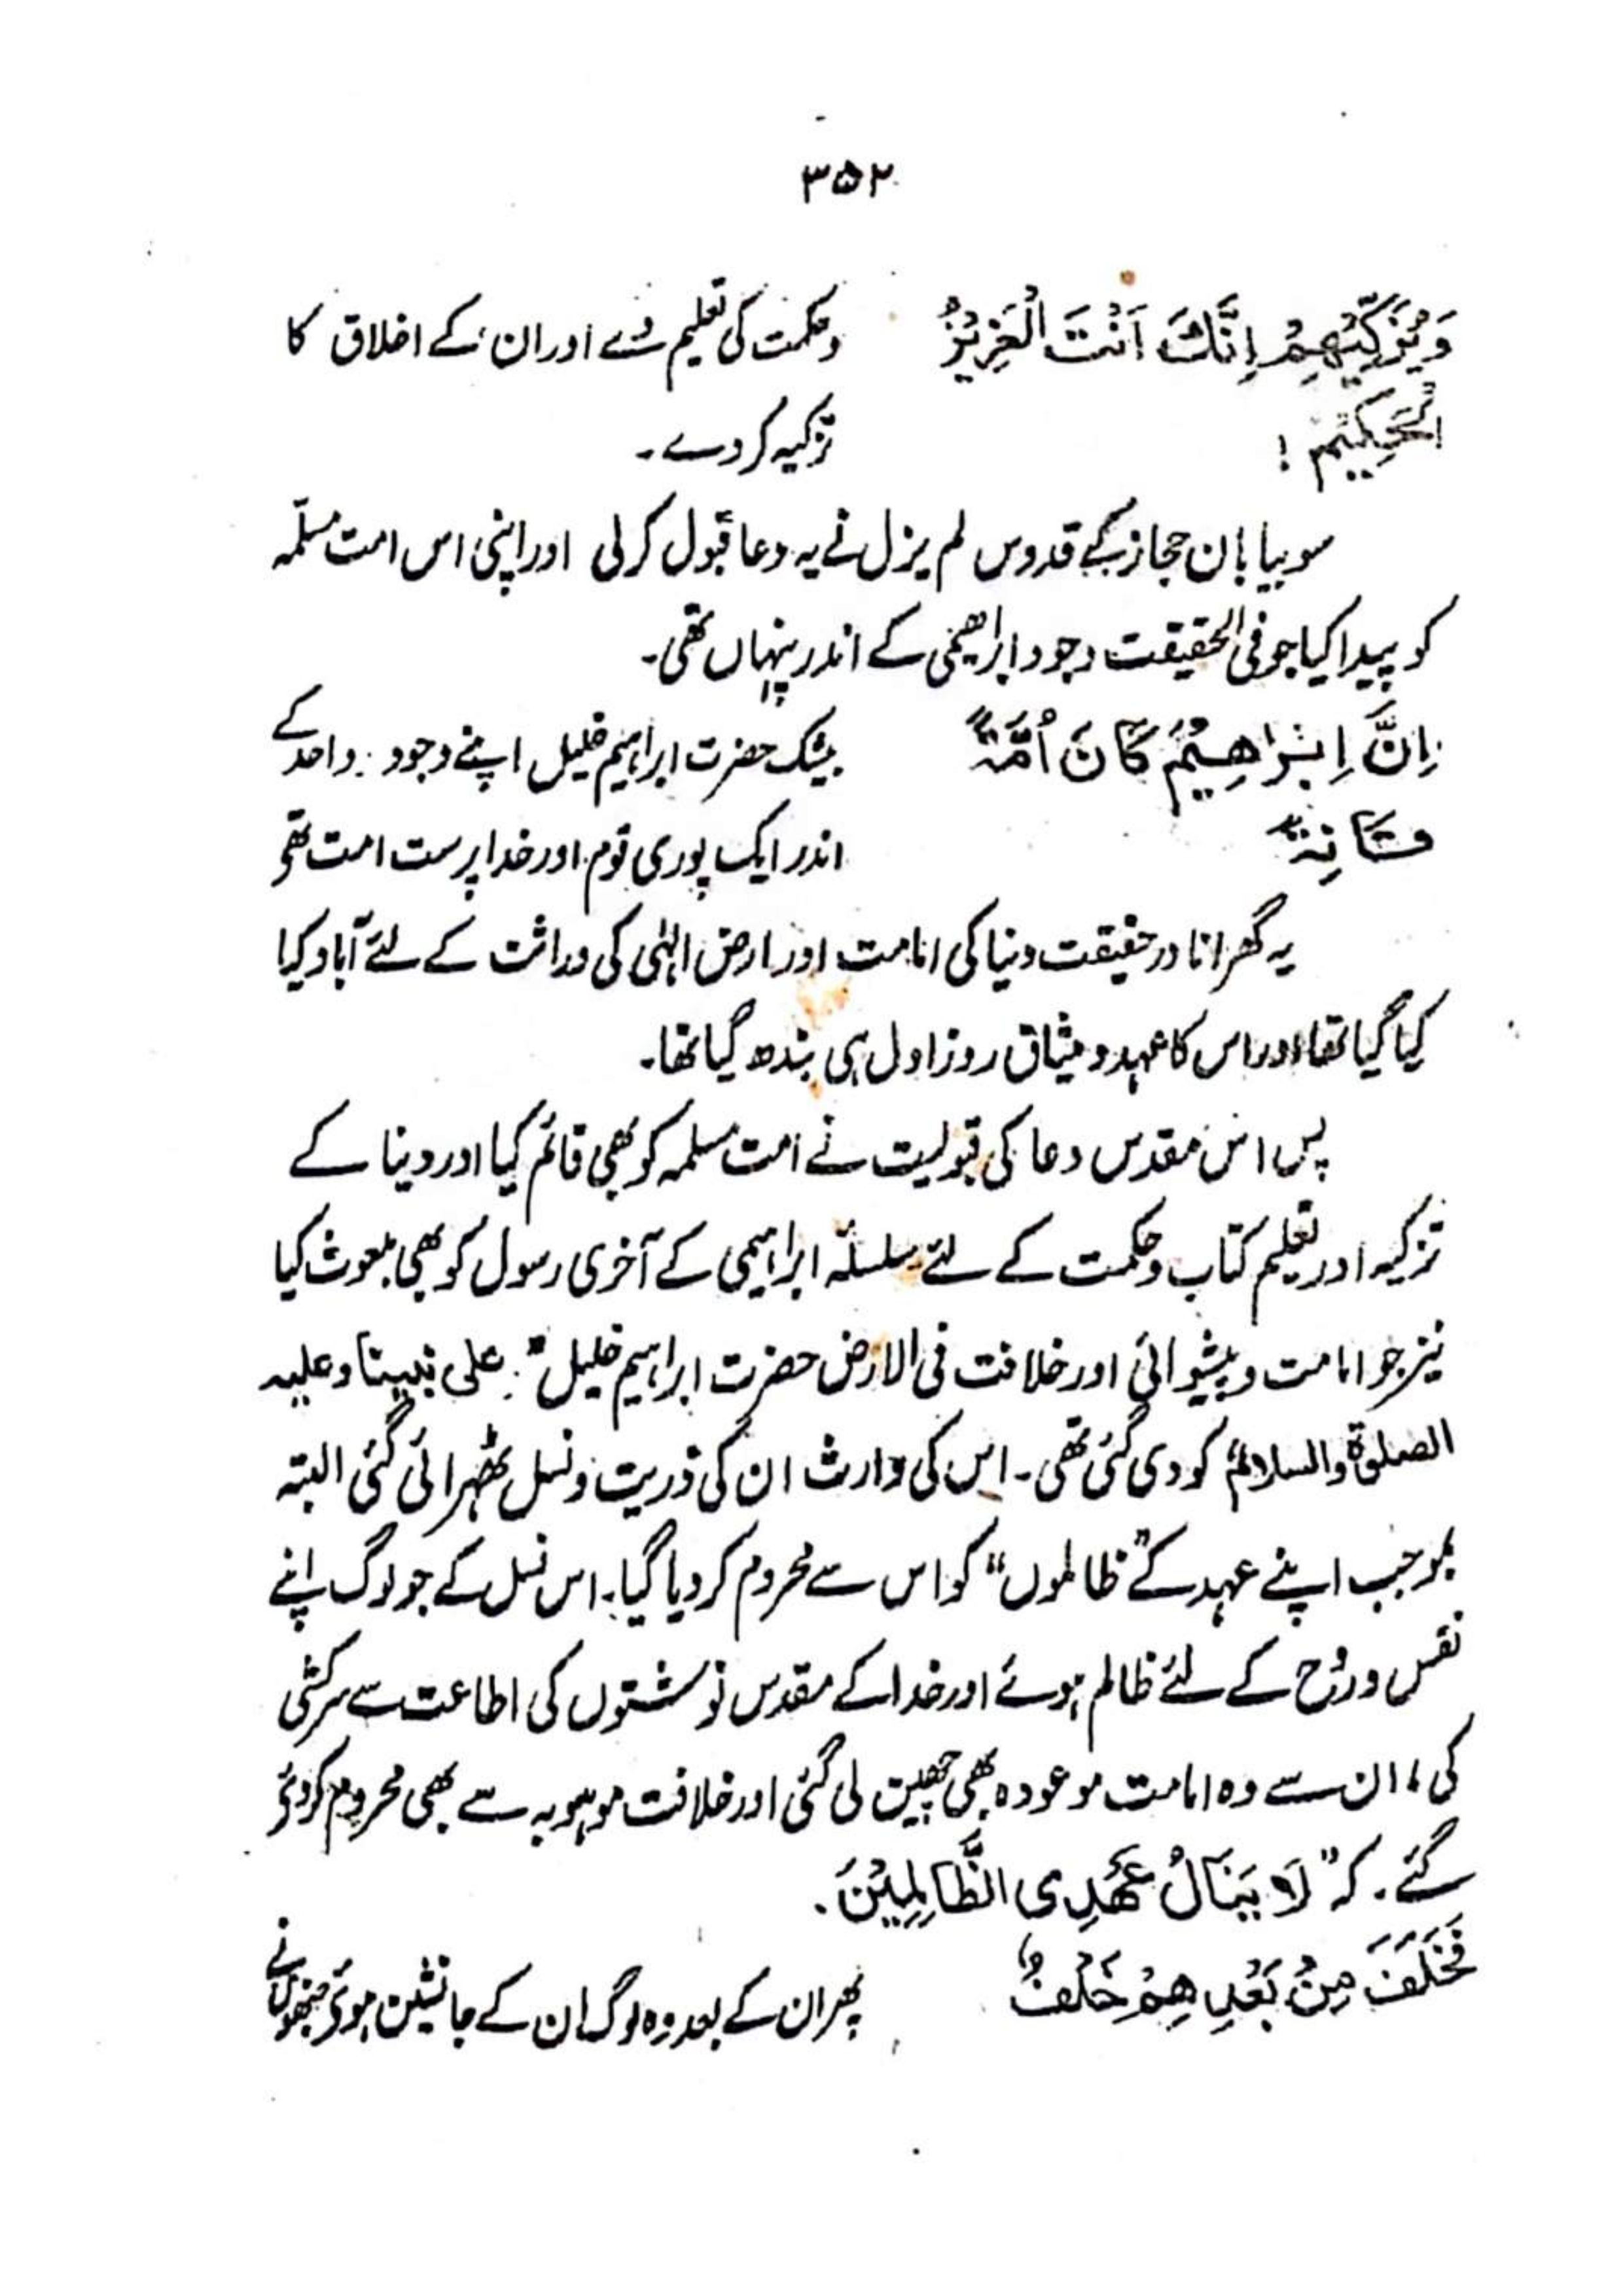 ۳۵۲
وَيُزَكِّيْهِمْ اِنَّكَ اَنْتَ الْعَزِيْزُ وحکمت کی تعلیم دے اور ان کے اخلاق کا
الْحَكِيْم ! تزکیہ کر دے۔
سو بیابان حجاز کے قدوس لم یزل نے یہ دعا قبول کرلی اور اپنی اس امت مسلمہ
کو پیدا کیا جو فی الحقیقت وجود ابراھیمی کے اندر پنہاں تھی۔
اِنَّ اِبْرَاهِيْمَ كَانَ اُمَّةً بیشک حضرت ابراہیم خلیل اپنے وجود واحد کے
قَانِتً اندر ایک پوری قوم اور خدا پرست امت تھی
یہ گھرانا در حقیقت دنیا کی امامت اور ارض الہٰی کی وراثت کے لئے آباد کیا
کیا گیا تھا اور اس کا عہد و میثاق روز اول ہی بندھ گیا تھا۔
پس اس مقدس دعا کی قبولیت نے امت مسلمہ کو بھی قائم کیا اور دینا کے
تزکیہ اور تعلیم کتاب وحکمت کے لئے سلسلہ ابراہیمی کے آخری رسول کو بھی مبعوث کیا
نیز جو امامت و پیشوائی اور خلافت فی الارض حضرت ابراہیم خلیل علی نبینا وعلیہ
الصلوٰة والسلام کو دی گئی تھی۔ اس کی وارث ان کی ذریت و نسل ٹھہرائی گئی البتہ
بموجب اپنے عہد کے ”ظالموں“ کو اس سے محروم کر دیا گیا۔ اس نسل کے جو لوگ اپنے
نفس و رُوح کے لئے ظالم ہوئے اور خدا کے مقدس نوشتوں کی اطاعت سے سرکشی
کی، ان سے وہ امامت موعودہ بھی چھین لی گئی اور خلافت موہوبہ سے بھی محروم کردئے
گئے۔ کہ ”لَا يَنَالُ عَهْدِى الظَّالِمِيْنَ۔
فَخَلَفَ مِنْ بَعْدِهِمْ خَلْفٌ پھر ان کے بعد وہ لوگ ان کے جانشین ہوئے جنھوں نے